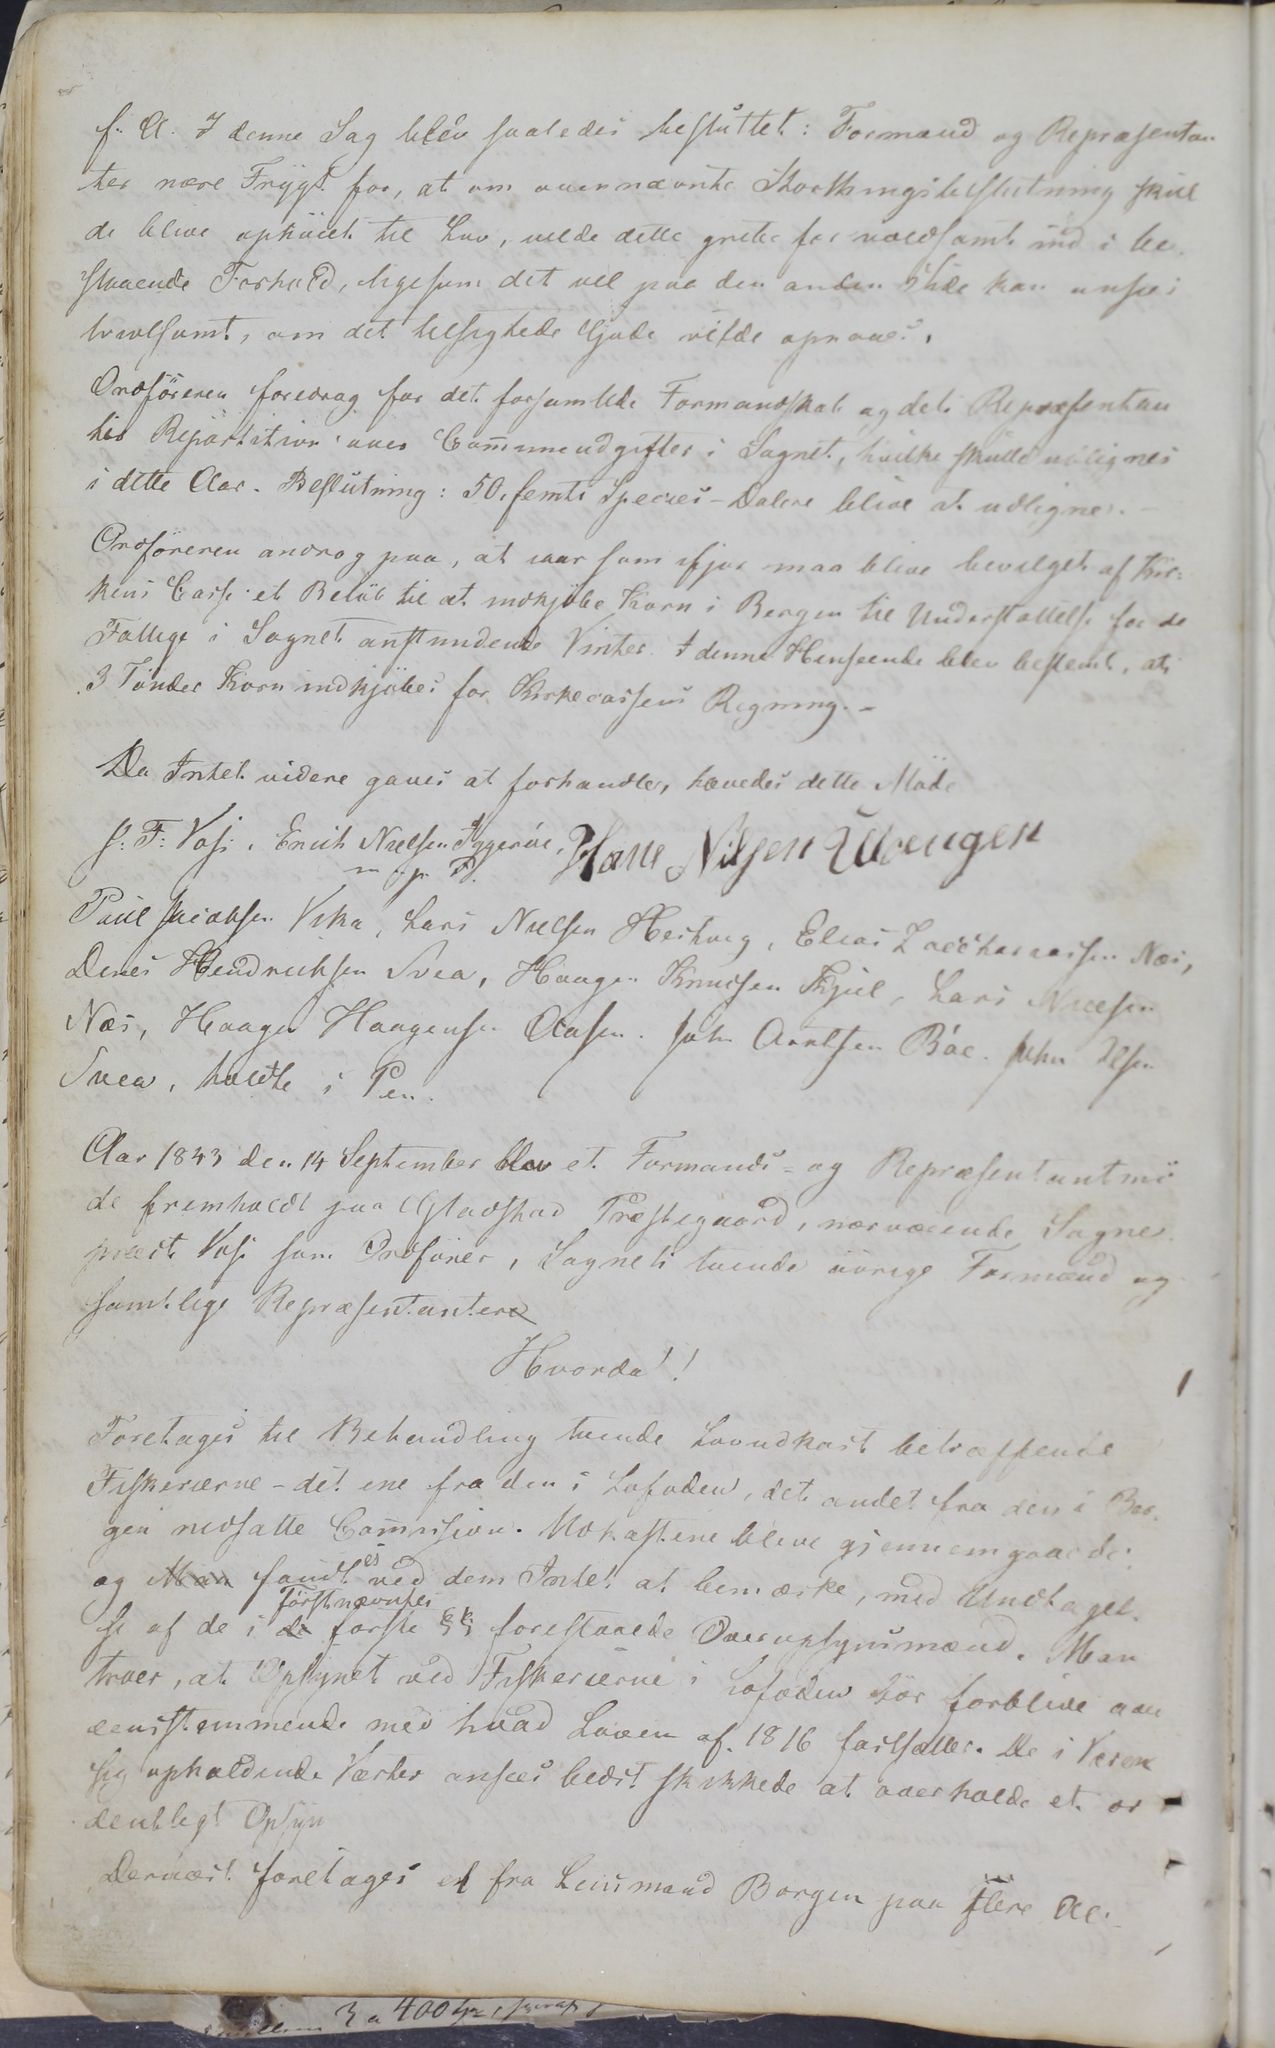 f: A. I denne Sag blev saaledes besluttet: Formænd og Repræsentan-
ter nære Frygt for, at om ovennævnte Storthingsbeslutning skul
de blive ophöiet til Lov, vilde dette gribe for voldsomt ind i be-
staaende Forhold, ligesom det vel paa den anden Side kan ansees
tvivlsomt, om det besigtede Gode vilde opnaaes.
Ordföreren foredrog for det forsamlede Formandskab og dets Repræsentan
ter Repartition over Communeudgifter i Sognet, hvilke skulle udlignes
i dette Aar. Beslutning: 50, femti Species-Dalere blive at udlignes. -
Ordföreren androg paa, at iaar som ifjor maa blive bevilget af Kir-
kens Casse et Belöb til at indkjöbe Korn i Bergen til Understöttelse for de
Fattige i Sognet anstundende Vinter. I denne Henseende blev bestemt, at
3 Tönder Korn indkjöbes for Kirkecassens Regning. -
Da Intet videre gaves at forhandle, hævedes dette Möde
J: F: Voss. Erich Nielsen Hans Nilsen Uvengen
m. p. P.
Paul Jacobsen Vika, Lars Nielsen Hestvig, Elias Zacchariassen Næs,
Denes Hendrichsen Svea, Haagen Knudsen Kjul, Lars Nielsen
Næs, Haagen Haagensen Aasen. John Arntsen Böe. John Olsen
Svea, holdte i Pen.
Aar 1843 den 14 September blev et Formands- og Repræsentantmö
de fremholdt paa Gladstad Præstegaard, nærværende Sogne-
præst Voss som Ordförer, Sognets tvende övrige Formænd og
samtlige Repræsentantere
Hvorda!!
Foretages til Behandling tvende Lovudkast betræffende
Fiskerierne - det ene fra den i Lofoden, det andet fra den i Ber-
gen nedsatte Commission. Udkastene bleve gjennemgaaede
og Man fandtes ved dem Intet at bemærke, med Undtagel-
se af de i de förstnævntes förste §§ foreslaaede Overopsynsmænd. Man
troer, at Opsynet ved Fiskerierne i Lofoden bör forblive over
eensstemmende med hvad Loven af 1816 fastsætter. De i Været
sig opholdende Værter ansees bedst skikkede at overholde et or
dentligt Opsyn
Dernæst foretages et fra Lensmand Borgen paa flere Al-
3 a 400